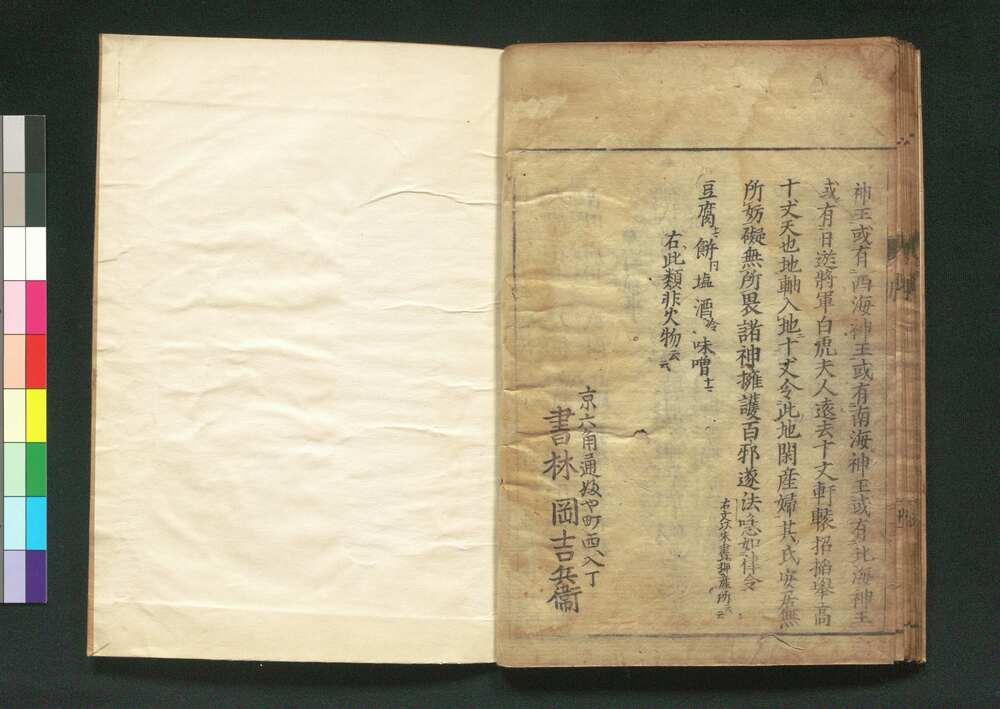 神王或有西海神王或有南海神王或有北海神王
或有日遊將軍白虎夫人遠去十丈軒轅招搖舉高
十丈天也地軸入地十丈令此地閑産婦某氏安居無
所妨礙無所畏諸神擁護百邪遂法急如律令
右文以朱書押産所
豆腐 餅 塩 酒 味噌
右此類非火物云云
京六角通
町西入丁
書林 岡吉兵衞